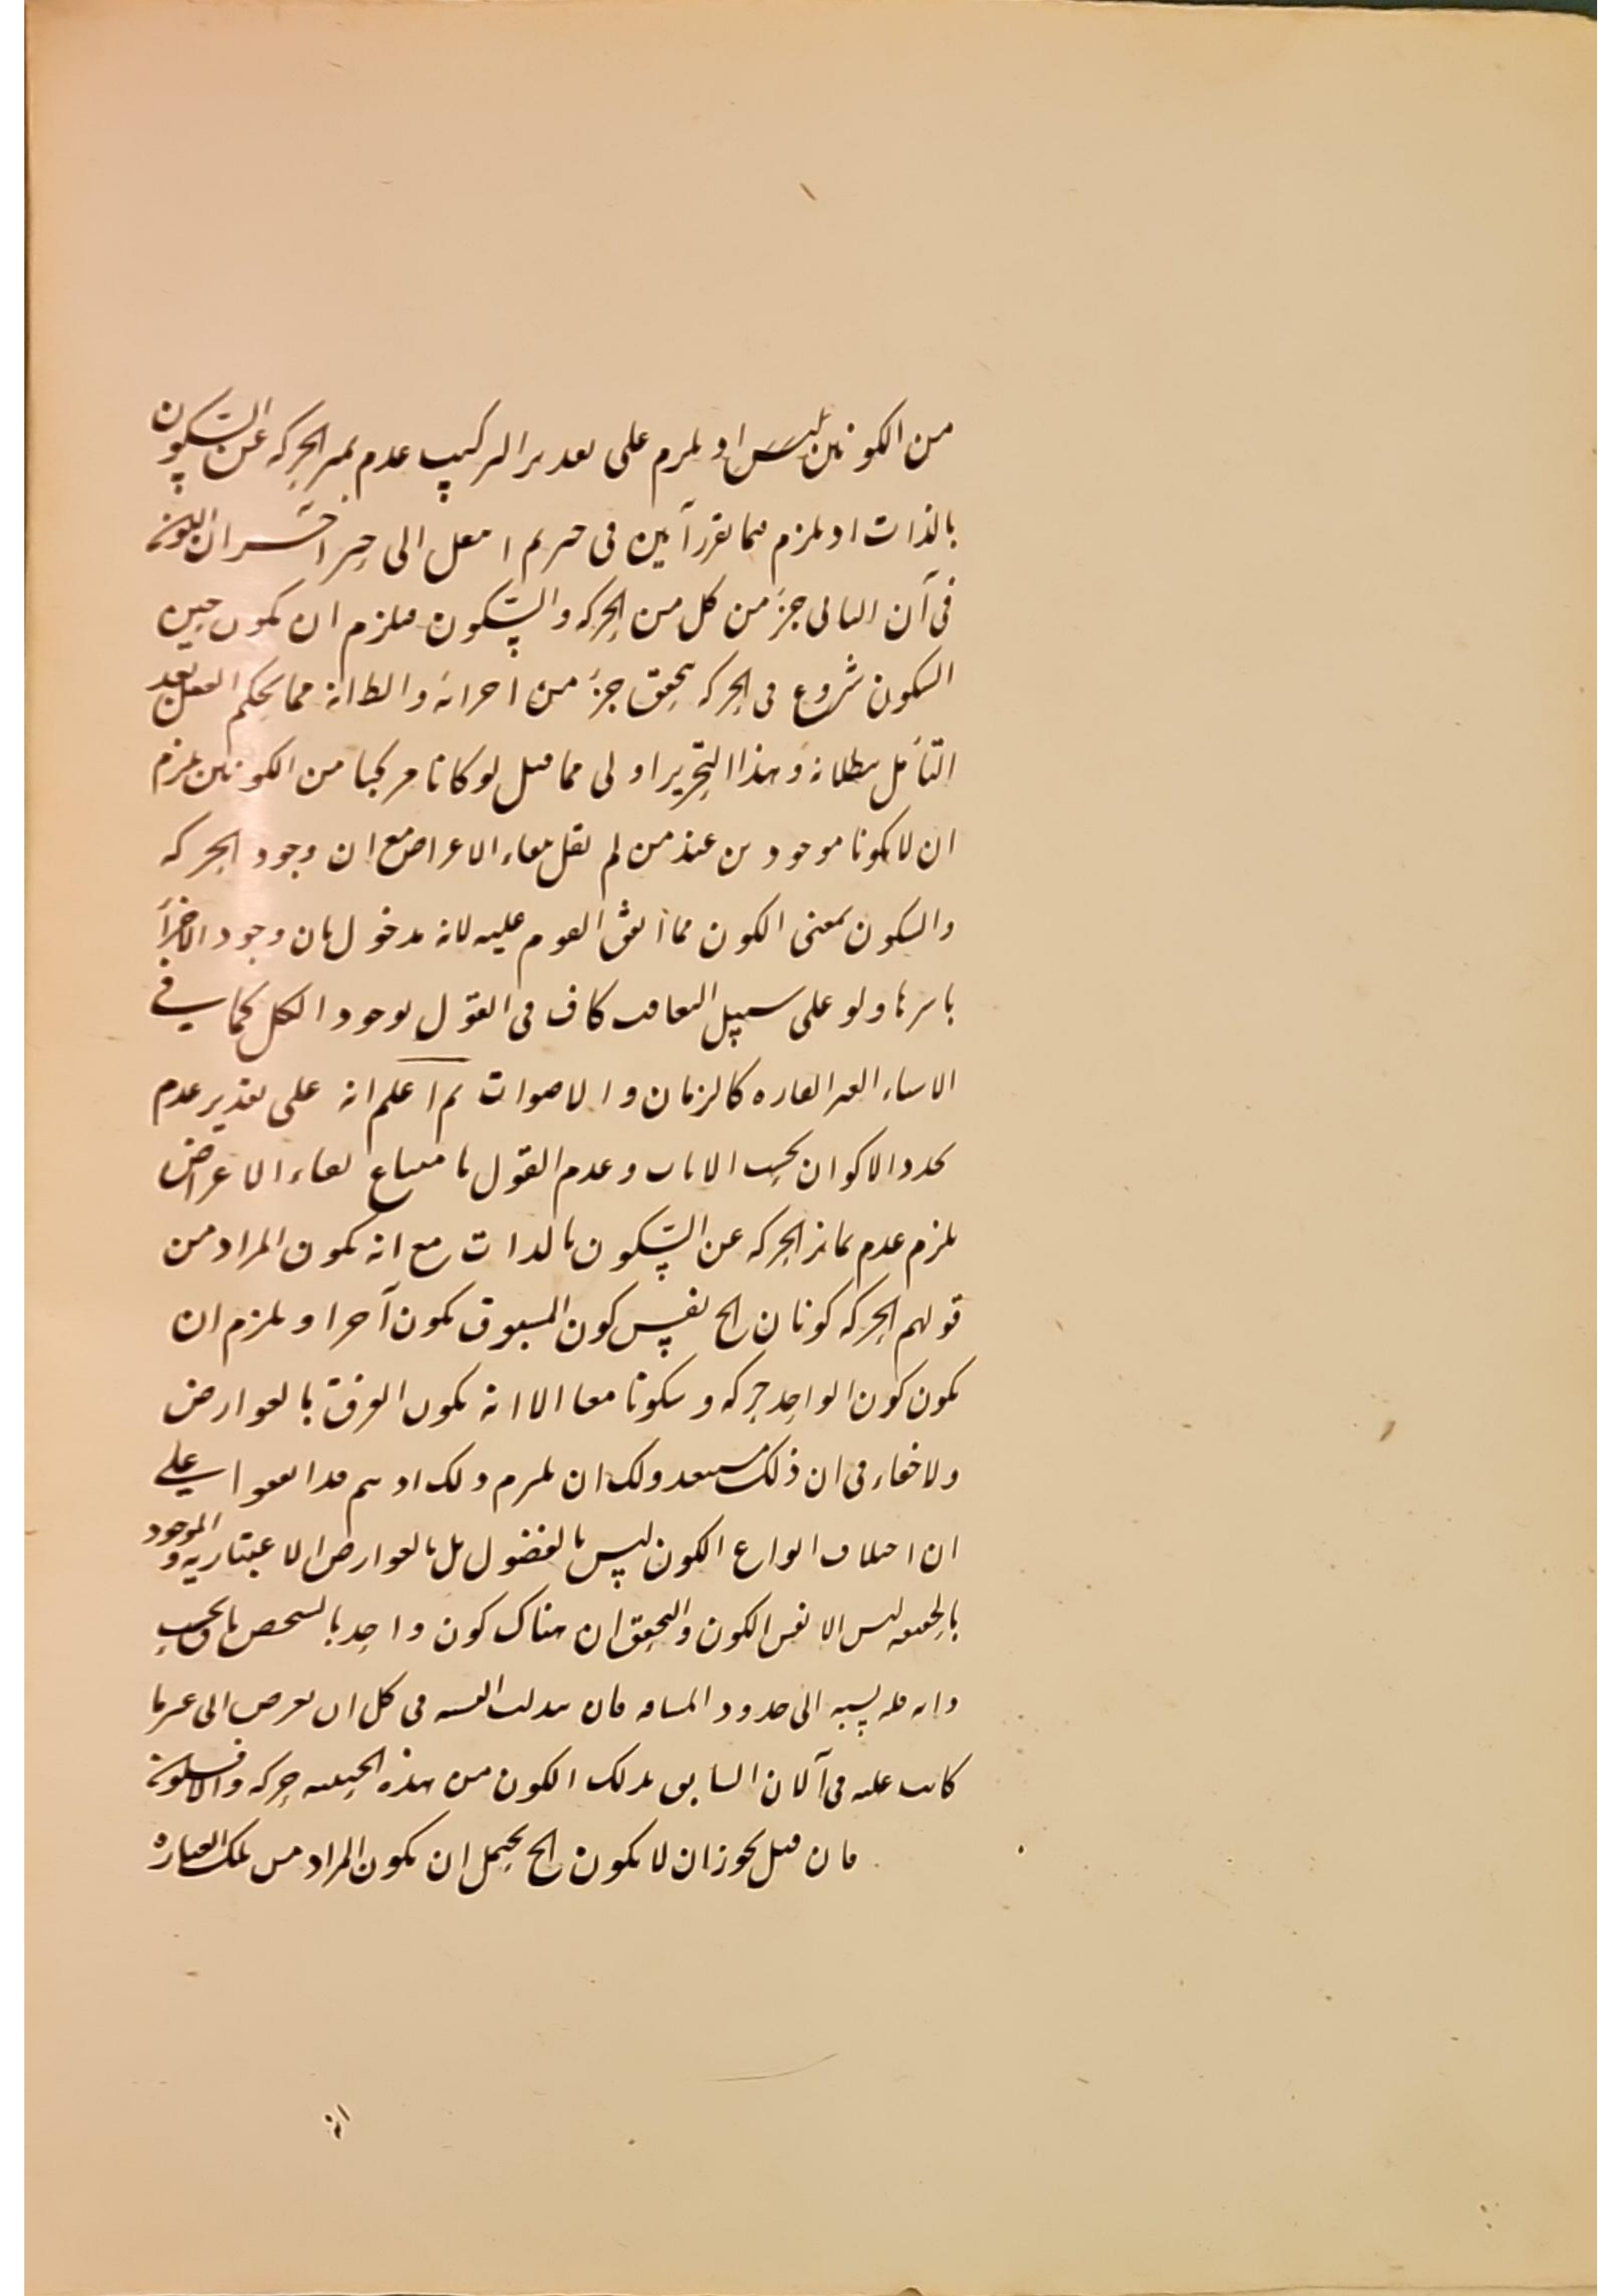 من الكونين ليس اذ يلزم على تقدير التركيب عدم تميز الحركة عن السكون
بالذات اذ يلزم فيما تقرر آنين في حيز ثم انتقل الى حيز آخر ان يكون
في آن الثاني جزء من كل من الحركة والسكون فيلزم ان يكون حين
السكون شروع في الحركة بتحقق جزء من اجزائه والظ انه مما يحكم العقل بعد
التأمل ببطلانه وهذا التحرير اولى مما قيل لو كانا مركبا من الكونين يلزم
ان لا يكونا موجودين عند من لم يقل ببقاء الاعراض مع ان وجود الحركة
والسكون بمعنى الكون مما اتفق القوم عليه لانه مدخول بان وجود الاجزاء
باسرها ولو على سبيل التعاقب كاف في القول بوجود الكل كما في
الاشياء الغير القارة كالزمان والاصوات ثم اعلم انه على تقدير عدم
تجدد الاكوان بحسب الانات وعدم القول بامتناع بقاء الاعراض
يلزم عدم تمايز الحركة عن السكون بالذات مع انه يكون المراد من
قولهم الحركة كونان الخ نفس كون المسبوق بكون آخر او يلزم ان
يكون كون الواحد حركة وسكونا معا الا انه يكون الفرق بالعوارض
ولا خفاء في ان ذلك مستبعد ولك ان تلزم ذلك اذ هم قد اتفقوا على
ان اختلاف انواع الكون ليس بالفصول بل بالعوارض الاعتبارية والموجود
بالحقيقة ليس الا نفس الكون والتحقيق ان هناك كون واحد بالشخص باق بحسب
ذاته فله نسبة الى حدود المسافة فان تبدلت النسبة في كل ان تعرض الى غير ما
كانت عليه في آلان السابق فذلك الكون من هذه الحيثية حركة والا فسكون
فان قيل يجوز ان لا يكون الخ يحتمل ان يكون المراد من تلك العبارة
انه